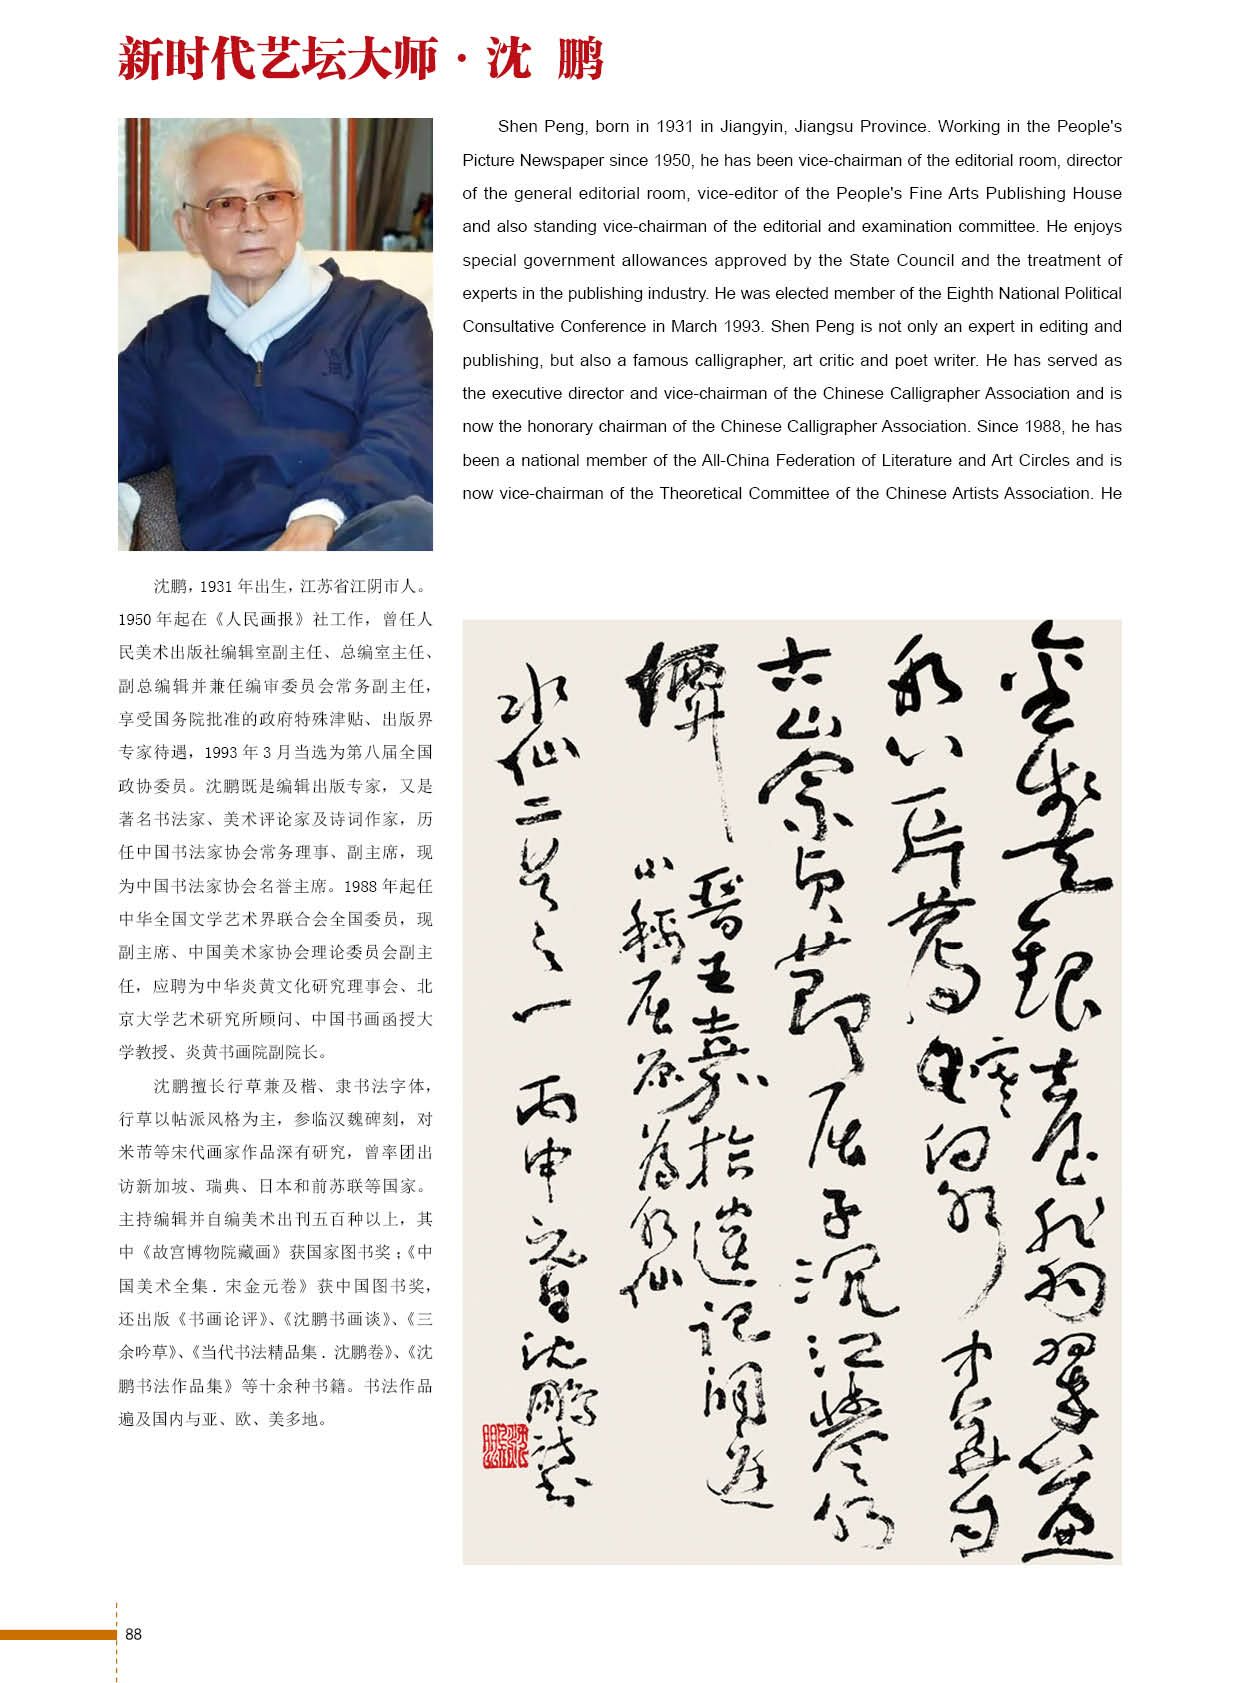 新时代艺坛大师·沈 鹏
Shen Peng, born in 1931 in Jiangyin, Jiangsu Province. Working in the People's
Picture Newspaper since 1950, he has been vice-chairman of the editorial room, director
of the general editorial room, vice-editor of the People's Fine Arts Publishing House
and also standing vice-chairman of the editorial and examination committee. He enjoys
special government allowances approved by the State Council and the treatment of
experts in the publishing industry. He was elected member of the Eighth National Political
Consultative Conference in March 1993. Shen Peng is not only an expert in editing and
publishing, but also a famous calligrapher, art critic and poet writer. He has served as
the executive director and vice-chairman of the Chinese Calligrapher Association and is
now the honorary chairman of the Chinese Calligrapher Association. Since 1988, he has
been a national member of the All-China Federation of Literature and Art Circles and is
now vice-chairman of the Theoretical Committee of the Chinese Artists Association. He
沈鹏，1931 年出生，江苏省江阴市人。
1950 年起在《人民画报》社工作，曾任人
民美术出版社编辑室副主任、总编室主任、
副总编辑并兼任编审委员会常务副主任，
享受国务院批准的政府特殊津贴、出版界
专家待遇，1993 年 3 月当选为第八届全国
政协委员。沈鹏既是编辑出版专家，又是
著名书法家、美术评论家及诗词作家，历
任中国书法家协会常务理事、副主席，现
为中国书法家协会名誉主席。1988 年起任
中华全国文学艺术界联合会全国委员，现
副主席、中国美术家协会理论委员会副主
任，应聘为中华炎黄文化研究理事会、北
京大学艺术研究所顾问、中国书画函授大
学教授、炎黄书画院副院长。
沈鹏擅长行草兼及楷、隶书法字体，
行草以帖派风格为主，参临汉魏碑刻，对
米芾等宋代画家作品深有研究，曾率团出
访新加坡、瑞典、日本和前苏联等国家。
主持编辑并自编美术出刊五百种以上，其
中《故宫博物院藏画》获国家图书奖；《中
国美术全集．宋金元卷》获中国图书奖，
还出版《书画论评》、《沈鹏书画谈》、《三
余吟草》、《当代书法精品集．沈鹏卷》、《沈
鹏书法作品集》等十余种书籍。书法作品
遍及国内与亚、欧、美多地。
屈子沉江
晋王嘉拾遗记洞庭
山 称屈原为水仙
水仙二首之一 丙申 沈鹏
88